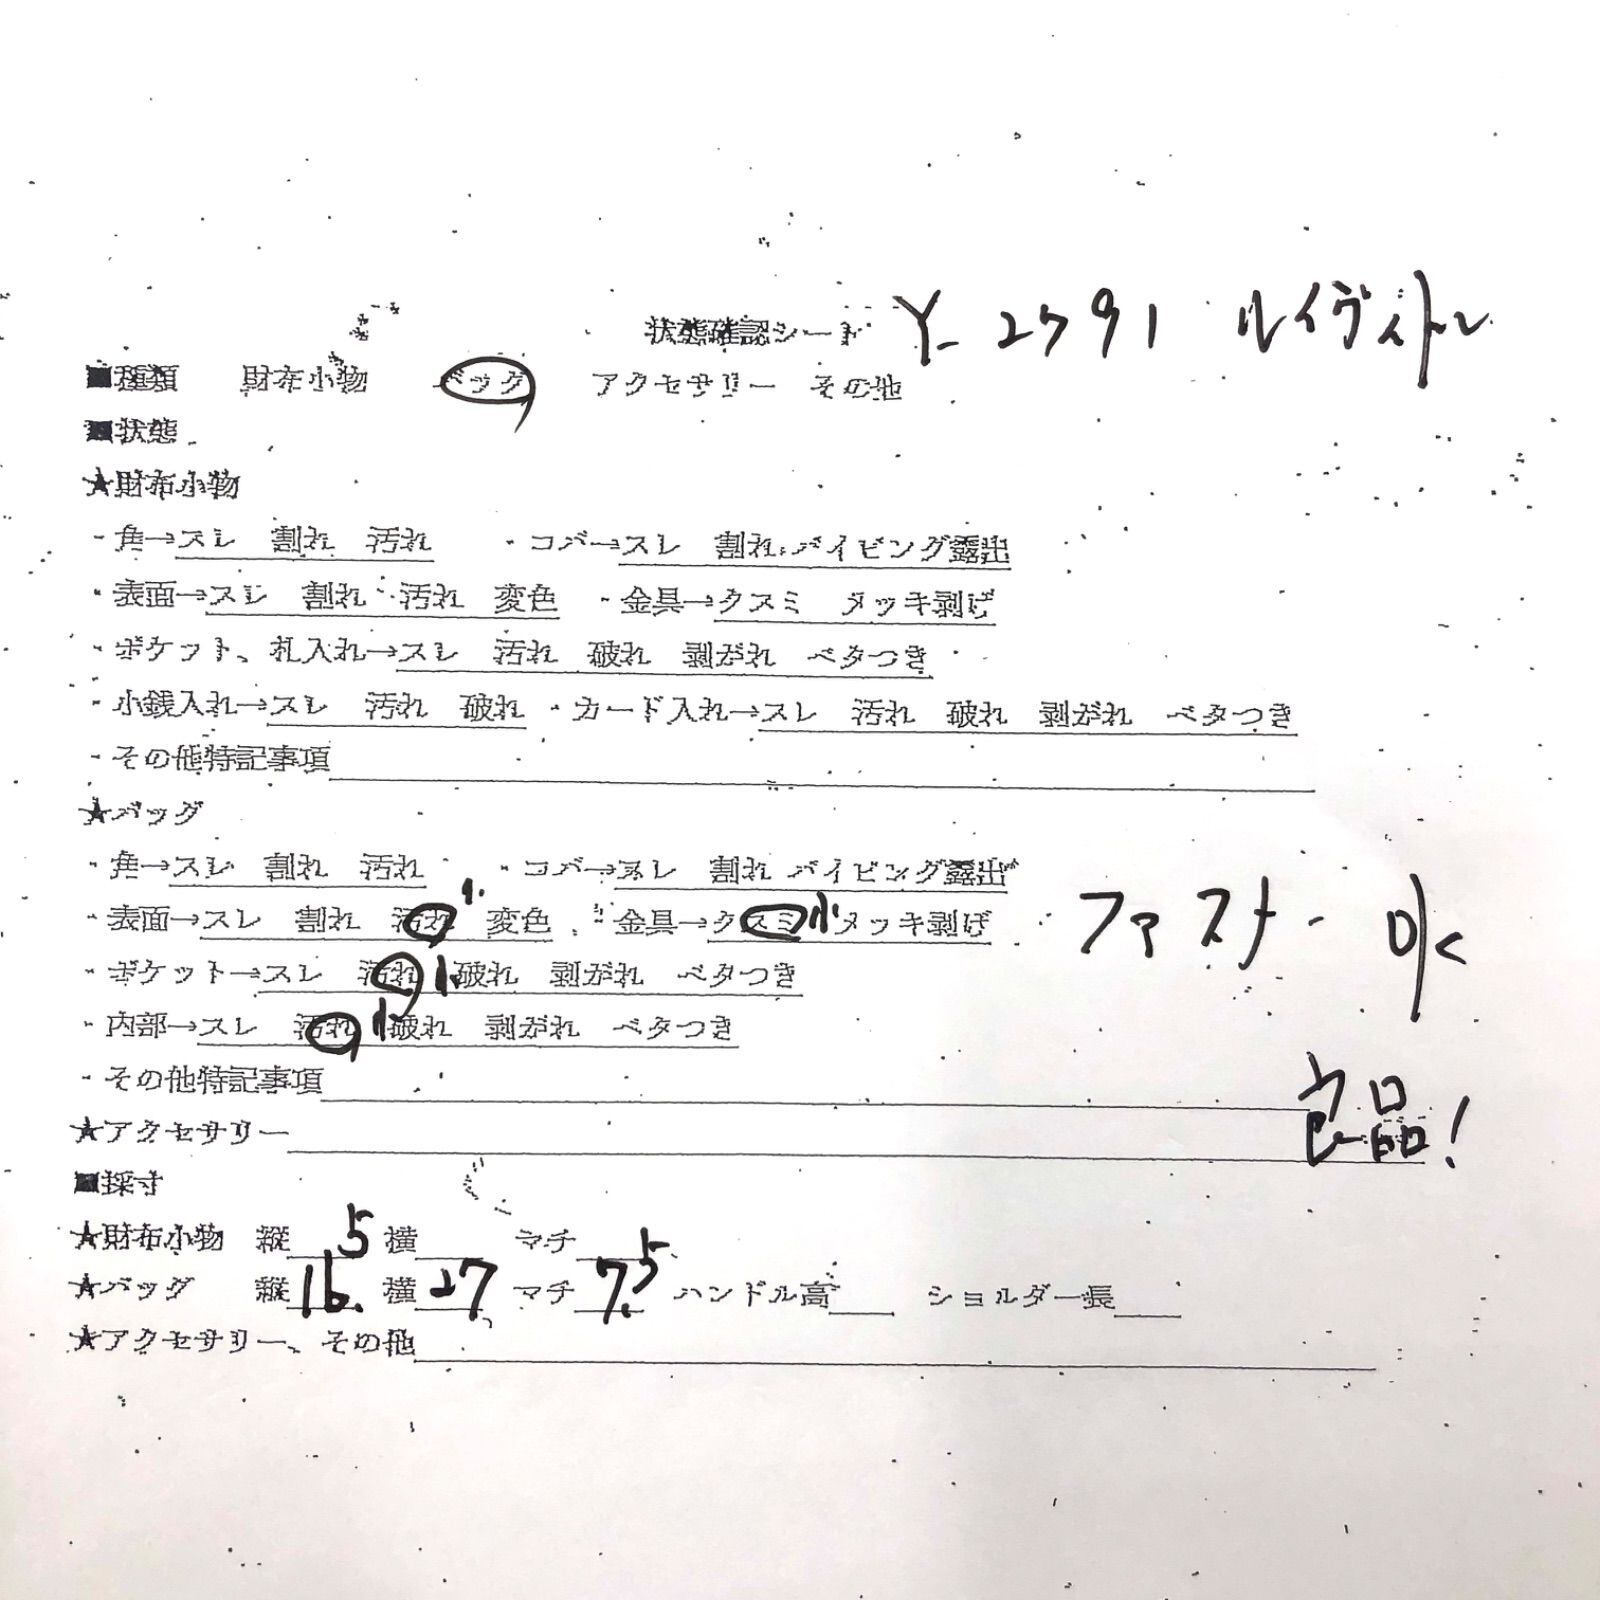 状態確認シート Y-2791 ルイヴィトン
■種類 財布小物 バッグ アクセサリー その他
■状態
★財布小物
・角→スレ 割れ 汚れ ・コバ→スレ 割れ パイピング露出
・表面→スレ 割れ 汚れ 変色 ・金具→クスミ メッキ剥げ
・ポケット、札入れ→スレ 汚れ 破れ 剥がれ ベタつき
・小銭入れ→スレ 汚れ 破れ ・カード入れ→スレ 汚れ 破れ 剥がれ ベタつき
・その他特記事項
★バッグ
・角→スレ 割れ 汚れ ・コバ→スレ 割れ パイピング露出
・表面→スレ 割れ 汚れ 小 変色 ・金具→クスミ 小 メッキ剥げ ファスナー
・ポケット→スレ 汚れ 小 破れ 剥がれ ベタつき
・内部→スレ 汚れ 小 破れ 剥がれ ベタつき
・その他特記事項
良品!
★アクセサリー
■採寸
★財布小物 縦 横 マチ
★バッグ 縦16.5 横27 マチ7.5 ハンドル高 ショルダー長
★アクセサリー、その他